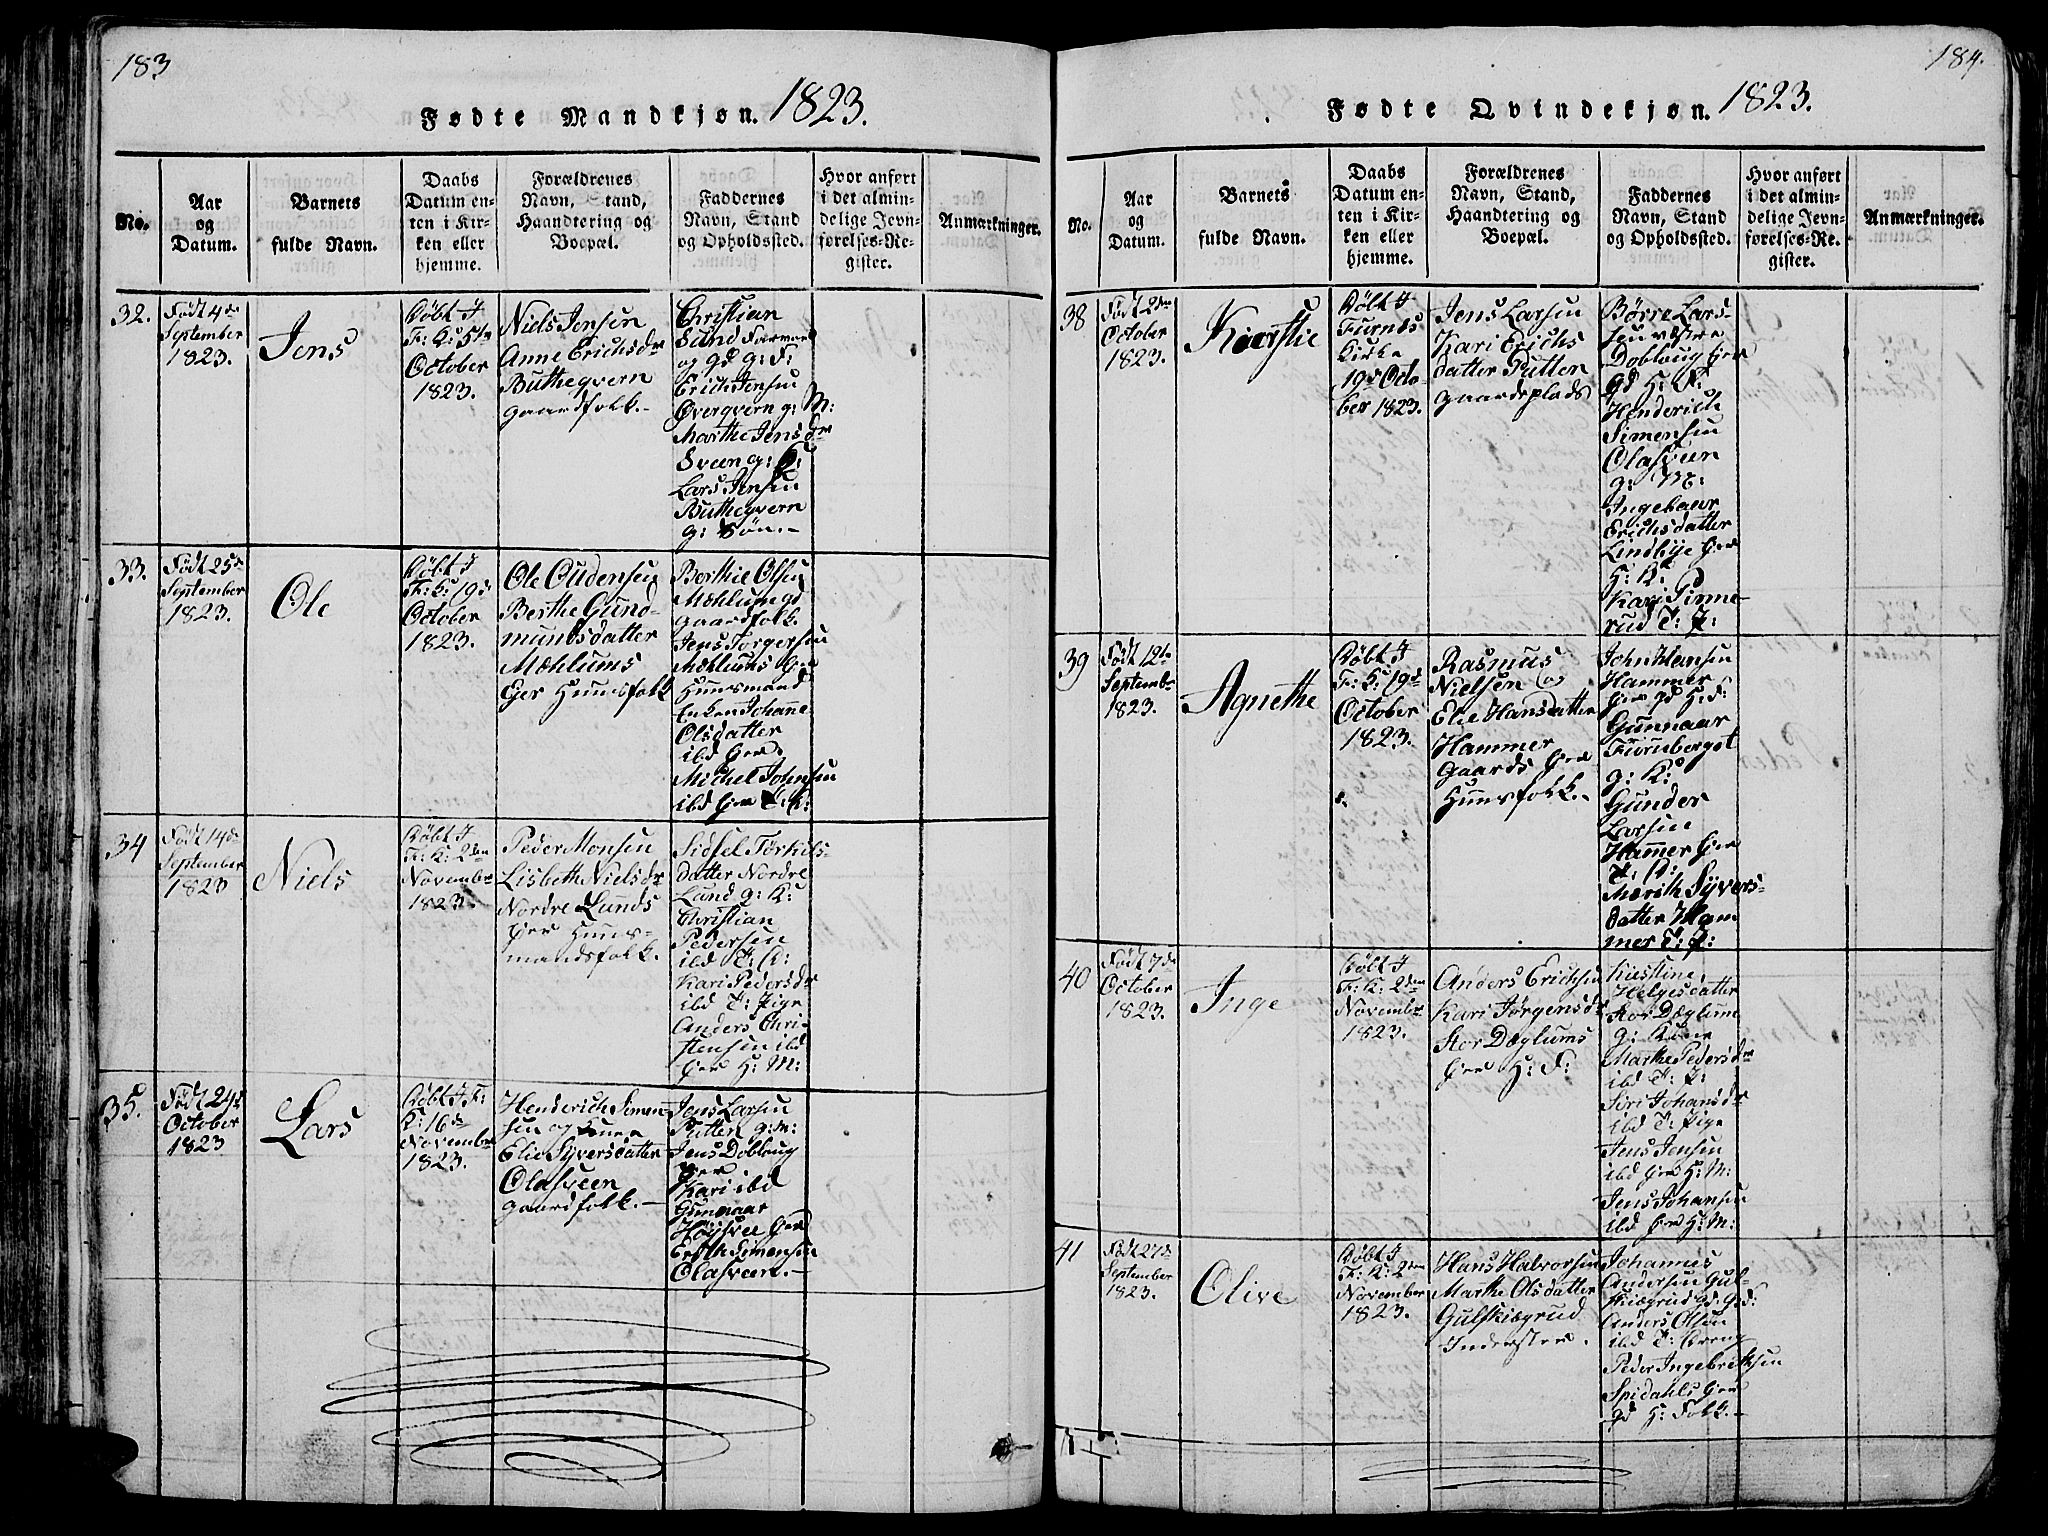 183
Fødte Mandkjøn. 1823.
No.
Aar
og
Datum.
Barnets
fulde Navn.
Daabs
Datum en-
ten i Kir-
ken eller
hjemme.
Forældrenes
Navn, Stand,
Haandtering og
Boepæl.
Faddernes
Navn, Stand
og Opholdssted.
Hvor anført
i det almin-
delige Jevn-
førelses-Re-
gister.
Anmærkninger.
32.
Født 4de
September
1823.
Jens
Døbt I
F: K: 5te
October
1823.
Niels Jensen
Anne Erichsdr
Butheqvern
gaardfolk.-
Christian
Sund
og gd g: F:
Erich Jensen
Øverqvern g: M:
Marthe Jensdr
Sveen g:
Lars Jensen
Butheqvern
g: Søn.-
33.
Født 25de
September
1823.
Ole
Døbt I
F: K: 19de
October
1823.
Ole Gudensen
Berthe Gund-
mundsdatter
Mæhlums
Eier Huusfolk
Berthe Olsen
Mæhlum gd
gaardfolk.
Jens Torgersen
Mæhlums Eier
Huusmand
Enken Johanne
Olsdatter
ibd Eier.
Michel Johnsen
ibd Eier K:
34
Født 14de
September
1823
Niels
Døbt I
F: K: 2den
Novembr
1823.
Peder Monsen
Lisbeth Nielsdr
Nordre Lunds
Eier Huus-
mandsfolk.
Sidsel Torkils-
datter Nordre
Lund g: K:
Christian
Pedersen
ibd K:
Kari Pedersdr
ibd Pige
Anders Chri-
stensen ibd
Eier H: M:
35.
Født 24de
October
1823
Lars
Døbt I F:
K: 16de
Novembr
1823.
Henderich Simen-
sen og
Elie Syversdatter
Olasveen
gaardfolk.-
Jens Larsen
Putten g: M:
Jens Doblaug
Eier
Kari ibd
Gunnaar
Høgsvee Eier
Erich Simensen
Olasveen.-
184.
Fødte Qvindekjøn. 1823.
No.
Aar
og
Datum.
Barnets
fulde Navn.
Daabs
Datum en-
ten i Kir-
ken eller
hjemme.
Forældrenes
Navn, Stand,
Haandtering og
Boepæl.
Faddernes
Navn, Stand
og Opholdssted.
Hvor anført
i det almin-
delige Jevn-
førelses-Re-
gister.
Anmærkninger.
38
Født 2den
October
1823.
Kierstie
Døbt I
Furnds
Kirke
19de Octo-
ber 1823.
Jens Larsen
Kari Erichs
datter Putten
gaardsplads
Børre Lars-
sen vestre
Doblaug Eier
gd H: F:
Henderich
Simensen
Olasveen
g: M:
Ingebaar
Erichsdatter
Lindbye Eier
H: K:
Kari Pinne-
rud P:
39
Født 12te
Septembr
1823.
Agnethe
Døbt I
F: K: 19de
October
1823.
Rasmus
Nielsen og
Elie Hansdatter
Hammer
Gaards Eier
Huusfolk.-
John Hansen
Hammer
Eier gd H: F:
Gunnaar
Fiornberget
g: K:
Gunder
Larsen
Hammer Eier
K:
Marith Syvers-
datter Ham
mer P:
40
Født 7de
October
1823.
Inge
Døbt I
F: K: 2den
Novembr
1823.
Anders Erichsen
Kari Jørgensdr
Stor Dæglums
Eier H: F:
Kiestine
Helgesdatter
Stor Dæglum
g: Kone
Marthe Pedersdr
ibd P:
Siri Johansdr
ibd Pige
Jens Jensen
ibd Eier H: M:
Jens Johansen
ibd Eier H: M:
41
Født 27de
September
1823.
Olive
Døbt I
F: K: 2den
November
1823.
Hans Halvorsen
Marthe Olsdatter
Gulskiegrud
Inderster.
Johannes
Andersen Gul-
skiegrud gd
Anders Olsen
ibd Dreng
Peder Ingebrithsen
Spidahls Eier
gd H: Folk.-